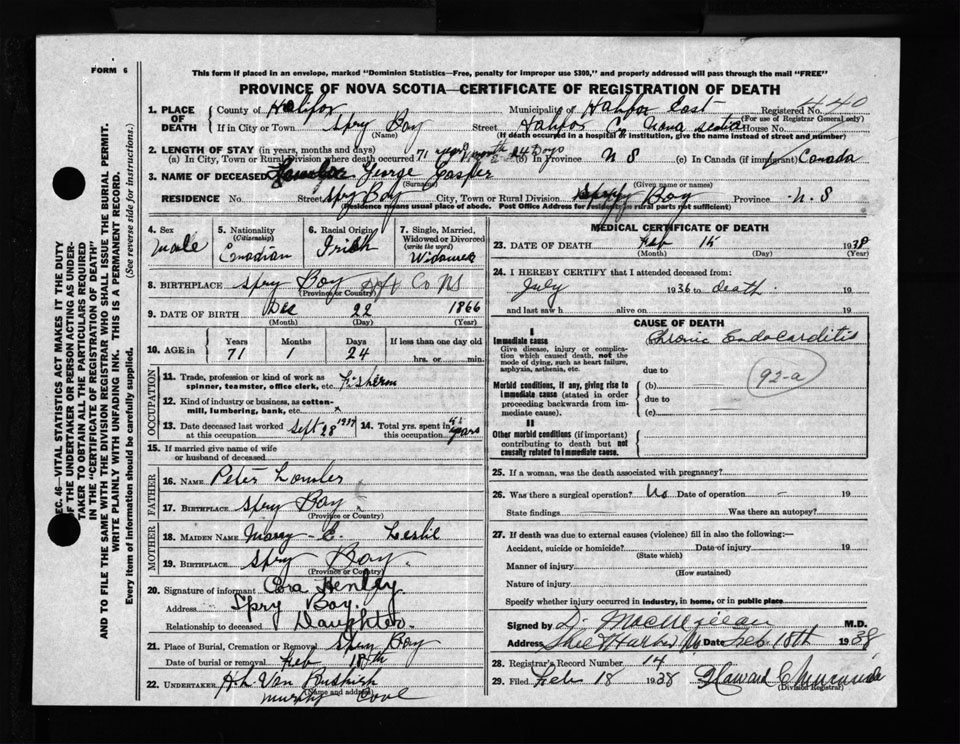 FORM 6
This form if placed in an envelope, marked "Dominion Statistics—Free, penalty for improper use $300," and properly addressed will pass through the mail "FREE"
PROVINCE OF NOVA SCOTIA—CERTIFICATE OF REGISTRATION OF DEATH
1. PLACE OF DEATH County of Halifax Municipality of Halifax East Registered No. 440
(For use of Registrar General only)
If in City or Town Spry Bay Street Halifax Co Nova Scotia House No.
(Name) (If death occurred in a hospital or institution, give its name instead of street and number)
2. LENGTH OF STAY (in years, months and days)
(a) In City, Town or Rural Division where death occurred 71 years 1 month 24 Days (b) In Province N S (c) In Canada (if immigrant) Canada
3. NAME OF DECEASED George Casper
(Surname) (Given name or names)
RESIDENCE No. Street Spry Bay City, Town or Rural Division Spry Bay Province N. S
(Residence means usual place of abode. Post Office Address for rural parts not sufficient)
4. Sex Male
5. Nationality (Citizenship) Canadian
6. Racial Origin Irish
7. Single, Married, Widowed or Divorced (write the word) Widowed
8. BIRTHPLACE Spry Bay Hfx Co NS
(Province or Country)
9. DATE OF BIRTH Dec 22 1866
(Month) (Day) (Year)
10. AGE in Years Months Days If less than one day old
71 1 24 hrs. or min.
OCCUPATION
11. Trade, profession or kind of work as spinner, teamster, office clerk, etc. Fisherm
12. Kind of industry or business, as cotton-mill, lumbering, bank, etc. x
13. Date deceased last worked at this occupation Sept 28 1937 14. Total yrs. spent in this occupation years
15. If married give name of wife or husband of deceased
FATHER
16. NAME Peter Lowler
17. BIRTHPLACE Spry Bay
(Province or Country)
MOTHER
18. MAIDEN NAME Marry - E. Leslie
19. BIRTHPLACE Spry Bay
(Province or Country)
20. Signature of informant Ora Henley
Address Spry Bay.
Relationship to deceased Daughter.
21. Place of Burial, Cremation or Removal Spry Bay
Date of burial or removal Feb 18th
22. UNDERTAKER H.h. Van Buskirk
(Name and address)
Murphy Cove
MEDICAL CERTIFICATE OF DEATH
23. DATE OF DEATH Feb 15 1938
(Month) (Day) (Year)
24. I HEREBY CERTIFY that I attended deceased from:
July 1936 to death. 19
and last saw h alive on 19
CAUSE OF DEATH
I
Immediate cause Chronic Endocarditis
Give disease, injury or complication which caused death, not the mode of dying, such as heart failure, asphyxia, asthenia, etc.
92-a
due to
Morbid conditions, if any, giving rise to immediate cause (stated in order proceeding backwards from immediate cause).
(b)
due to
(c)
II
Other morbid conditions (if important) contributing to death but not causally related to immediate cause.
25. If a woman, was the death associated with pregnancy?
26. Was there a surgical operation? No Date of operation - 19
State findings Was there an autopsy?
27. If death was due to external causes (violence) fill in also the following:—
Accident, suicide or homicide? Date of injury 19
(State which)
Manner of injury
(How sustained)
Nature of injury
Specify whether injury occurred in industry, in home, or in public place
Signed by M.D.
Address Sheet Harbor NS Date Feb 18th 1938
28. Registrar's Record Number 14
29. Filed Feb 18 1938 Howard
(Division Registrar)
SEC. 46—VITAL STATISTICS ACT MAKES IT THE DUTY
OF THE UNDERTAKER OR PERSON ACTING AS UNDER-
TAKER TO OBTAIN ALL THE PARTICULARS REQUIRED
IN THE "CERTIFICATE OF REGISTRATION OF DEATH"
AND TO FILE THE SAME WITH THE DIVISION REGISTRAR WHO SHALL ISSUE THE BURIAL PERMIT.
WRITE PLAINLY WITH UNFADING INK. THIS IS A PERMANENT RECORD.
Every item of information should be carefully supplied. (See reverse side for instructions.)